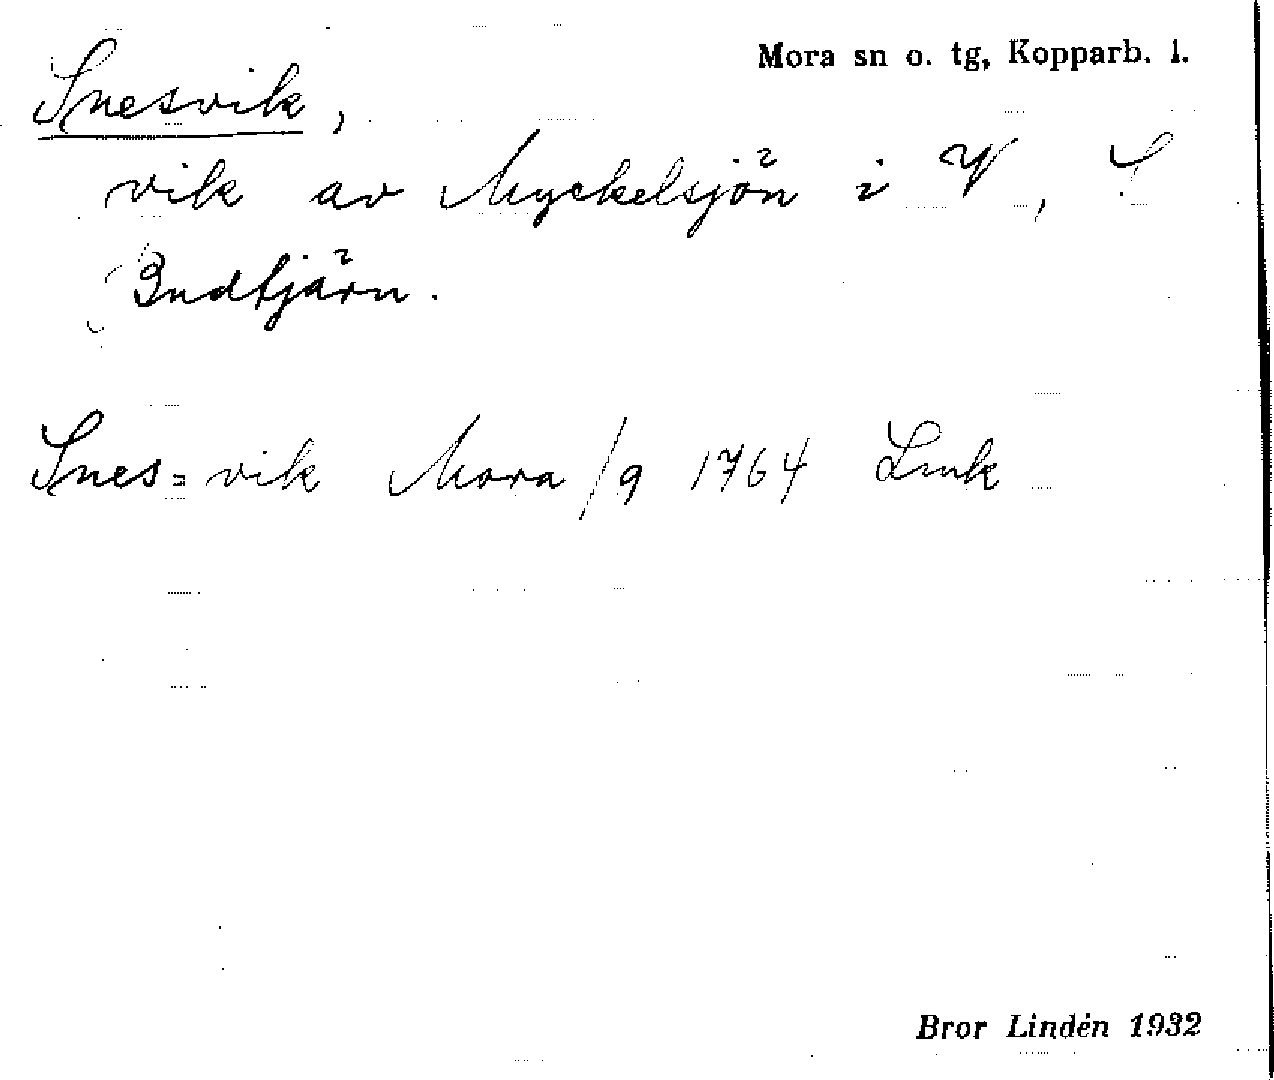 Mora sn o. tg, Kopparb. l.
Snesvik,
vik av Myckelsjön i V, S
Budtjärn.
Snes=vik Mora/9 1764 Link
Bror Lindén 1932